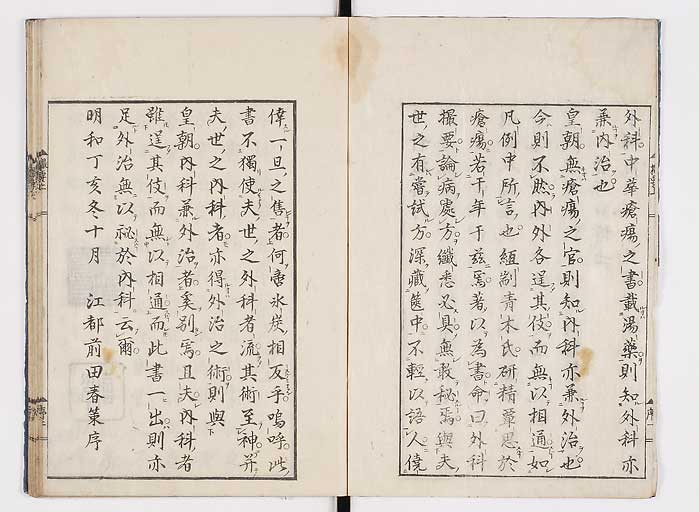 外科中華瘡瘍之書載湯藥則知外科亦
兼內治也
皇朝無瘡瘍之官則知內科亦兼外治也
今則不然內外各逞其伎而無以相通如
凡例中所言也組剬青木氏研精覃思於
瘡瘍若干年于茲焉著以為書命曰外科
撮要論病處方纖悉必具無敢秘焉與夫
世之有嘗試方深藏篋中不輕以語人僥
倖一旦之售者何啻氷炭相反乎嗚呼此
書不獨使夫世之外科者流其術至神并
夫世之內科者亦得外治之術則與
皇朝內科兼外治者奚别焉且夫內科者
雖逞其伎而無以相通而此書一出則亦
足外治無以祕於內科云爾
明和丁亥冬十月 江都前田春策序